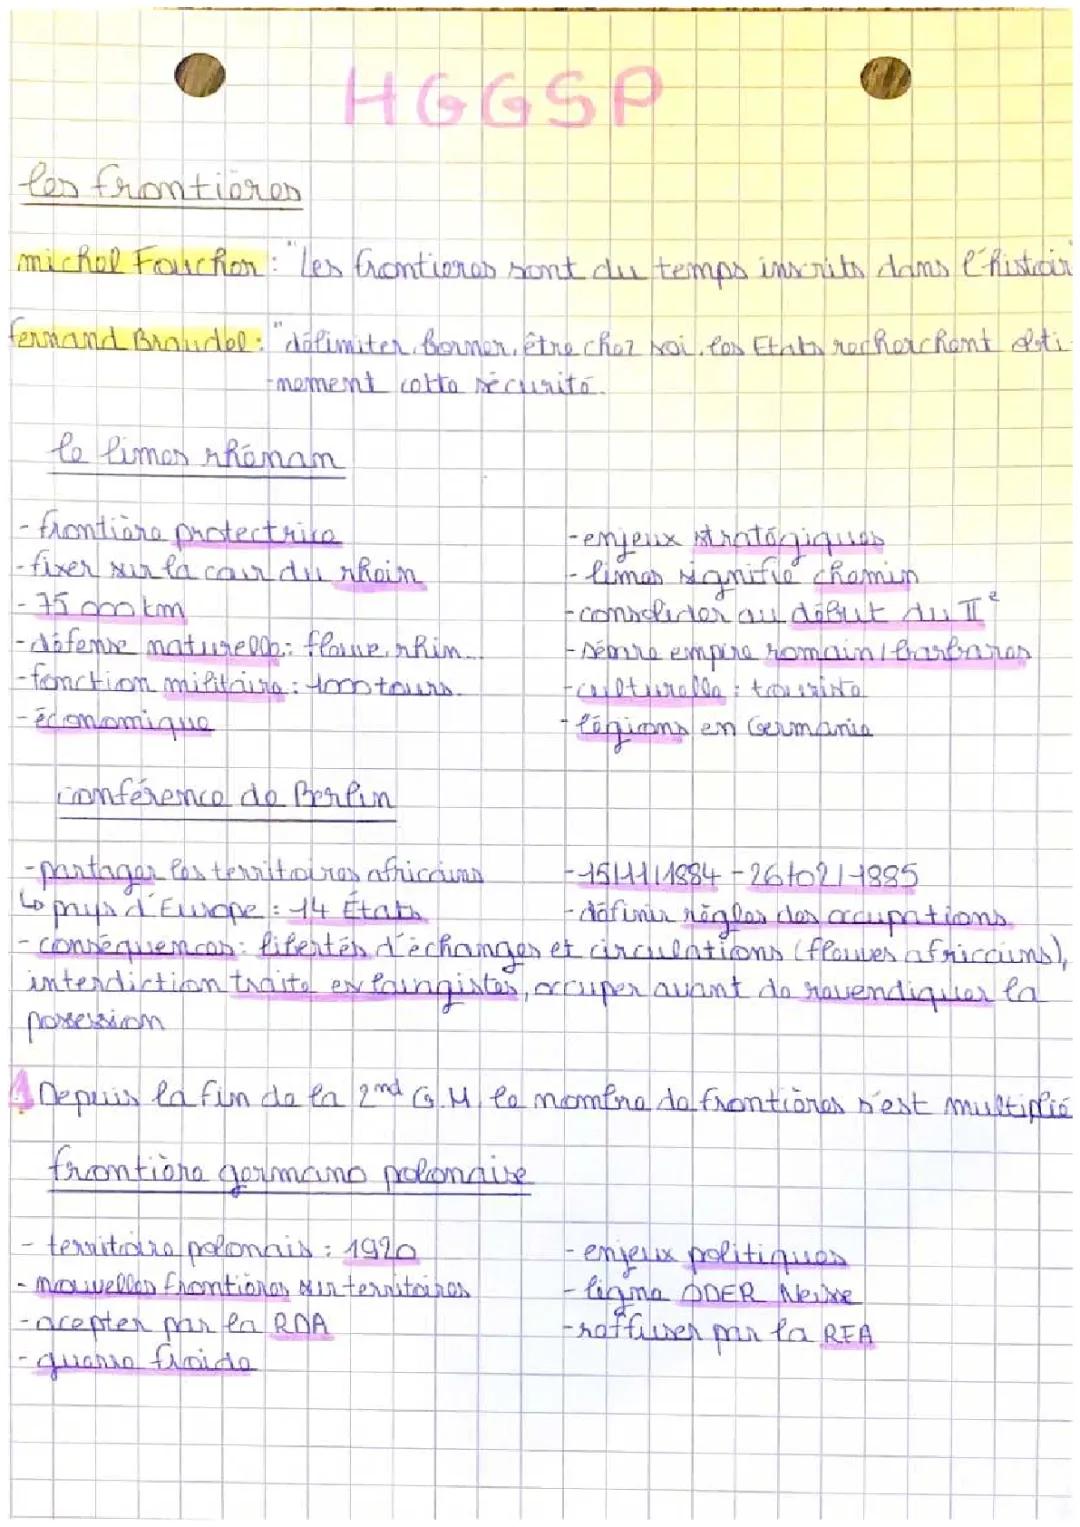 HGGSP
les frontières
michel Foucher : "les frontières sont du temps inscrits dans l'histoir
fernand Braudel : "délimiter, borner, être chez soi, les Etats recherchent obsti
-nement cette sécurité.
le limes rhénan
- frontière protectrice
- fixer sur la cour du rhein
- 75 000 km
- défense naturelle : fleuve, rhin...
- fonction militaire : 1000 tours.
- économique
- enjeux stratégiques
- limes signifie chemin
- consolider au début du IIe
- sépare empire romain / barbares
- culturelle : touriste
- légions en Germanie
conférence de Berlin
- partager les territoires africains
↳ pays d'Europe : 14 États
- 15/11/1884 - 26/02/1885
- définir règles des occupations
- conséquences : libertés d'échanges et circulations (fleuves africains),
interdiction traite esclavagistes, occuper avant de revendiquer la
possession
Depuis la fin de la 2nd G.M, le nombre de frontières s'est multiplié
frontière germano polonaise
- territoire polonais : 1920
- nouvelles frontières sur territoires
- acepter par la RDA
- guerre froide
- enjeux politiques
- ligne ODER Neisse
- reffuser par la RFA